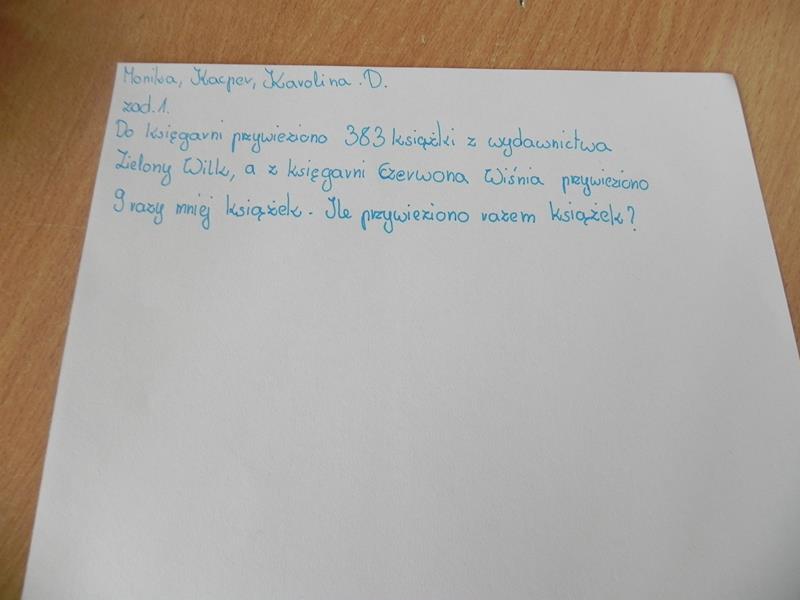 Monika, Kacper, Karolina .D.
zad.1.
Do księgarni przywieziono 383 książki z wydawnictwa
Zielony Wilk, a z księgarni Czerwona Wiśnia przywieziono
9 razy mniej książek. Ile przywieziono razem książek?